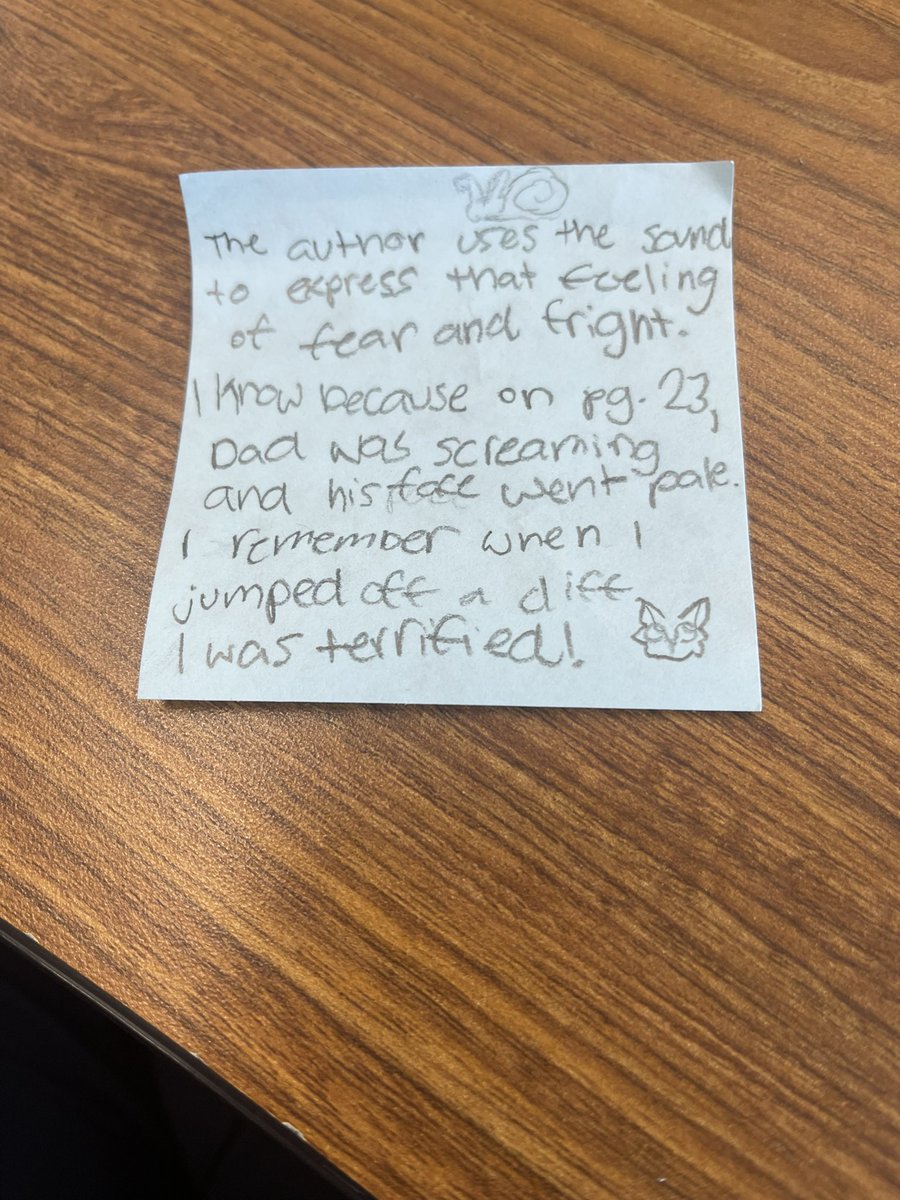 The author uses the sound
to express that feeling
of fear and fright.
I know because on pg. 23,
Dad was screaming
and his face went pale.
I remember when I
jumped off a cliff,
I was terrified!